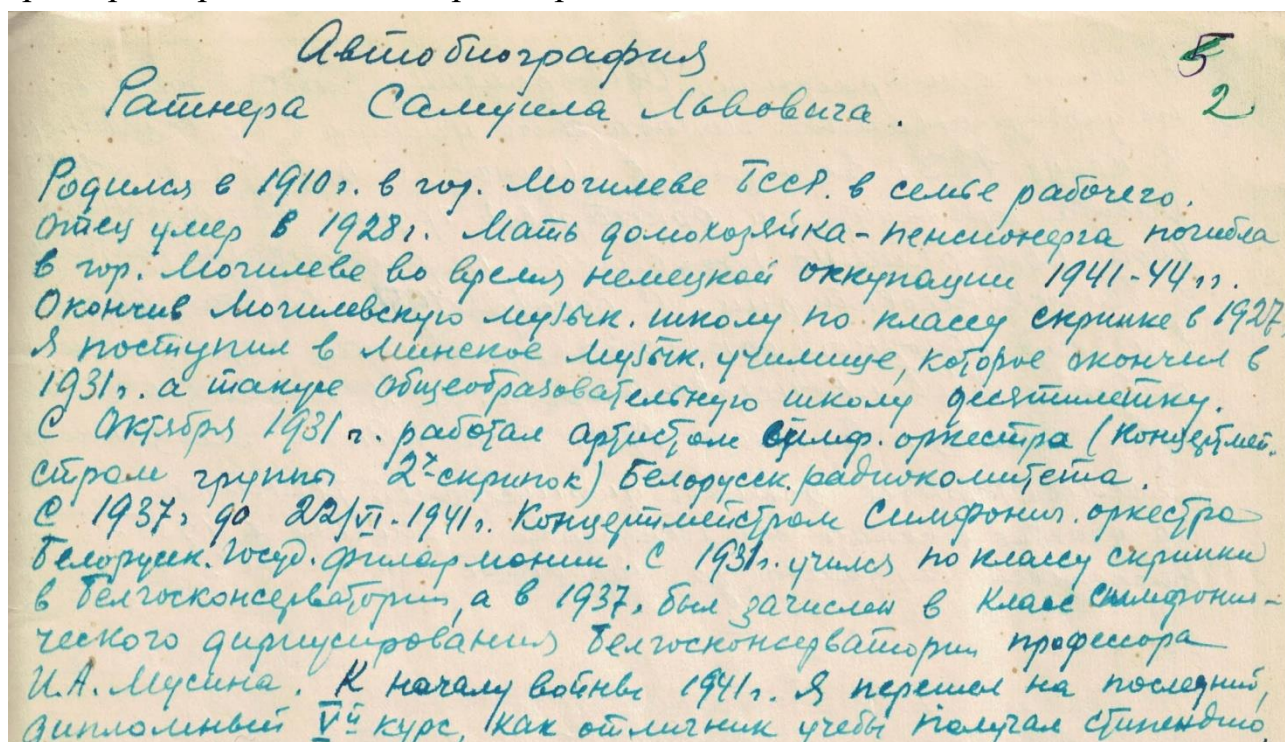 Автобиография
5
Ратнера Самуила Львовича.
2
Родился в 1910 г. в гор. Могилеве БССР. в семье рабочего.
отец умер в 1928 г. Мать домохозяйка-пенсионерка погибла
в гор. Могилеве во время немецкой оккупации 1941-44 гг.
Окончив Могилевскую музык. школу по классу скрипке в 1927
я поступил в Минское музык. училище, которое окончил в
1931 г. а также общеобразовательную школу десятилетку.
С Октября 1931 г. работал артистом симф. оркестра (Концертмей-
стром группы 2х скрипок) Белорусск. радиокомитета.
С 1937 г до 22/VI-1941 г. Концертмейстром Симфонич. оркестра
Белорусск. Госуд. филармонии. С 1931 г. учился по классу скрипки
в Белгосконсерватории, а в 1937 г был зачислен в Класс симфони-
ческого дирижирования Белгосконсерватории профессора
И.А. Мусина. К началу войны 1941 г. Я перешел на последний,
дипломный Vй курс, как отличник учебы получал стипендию,